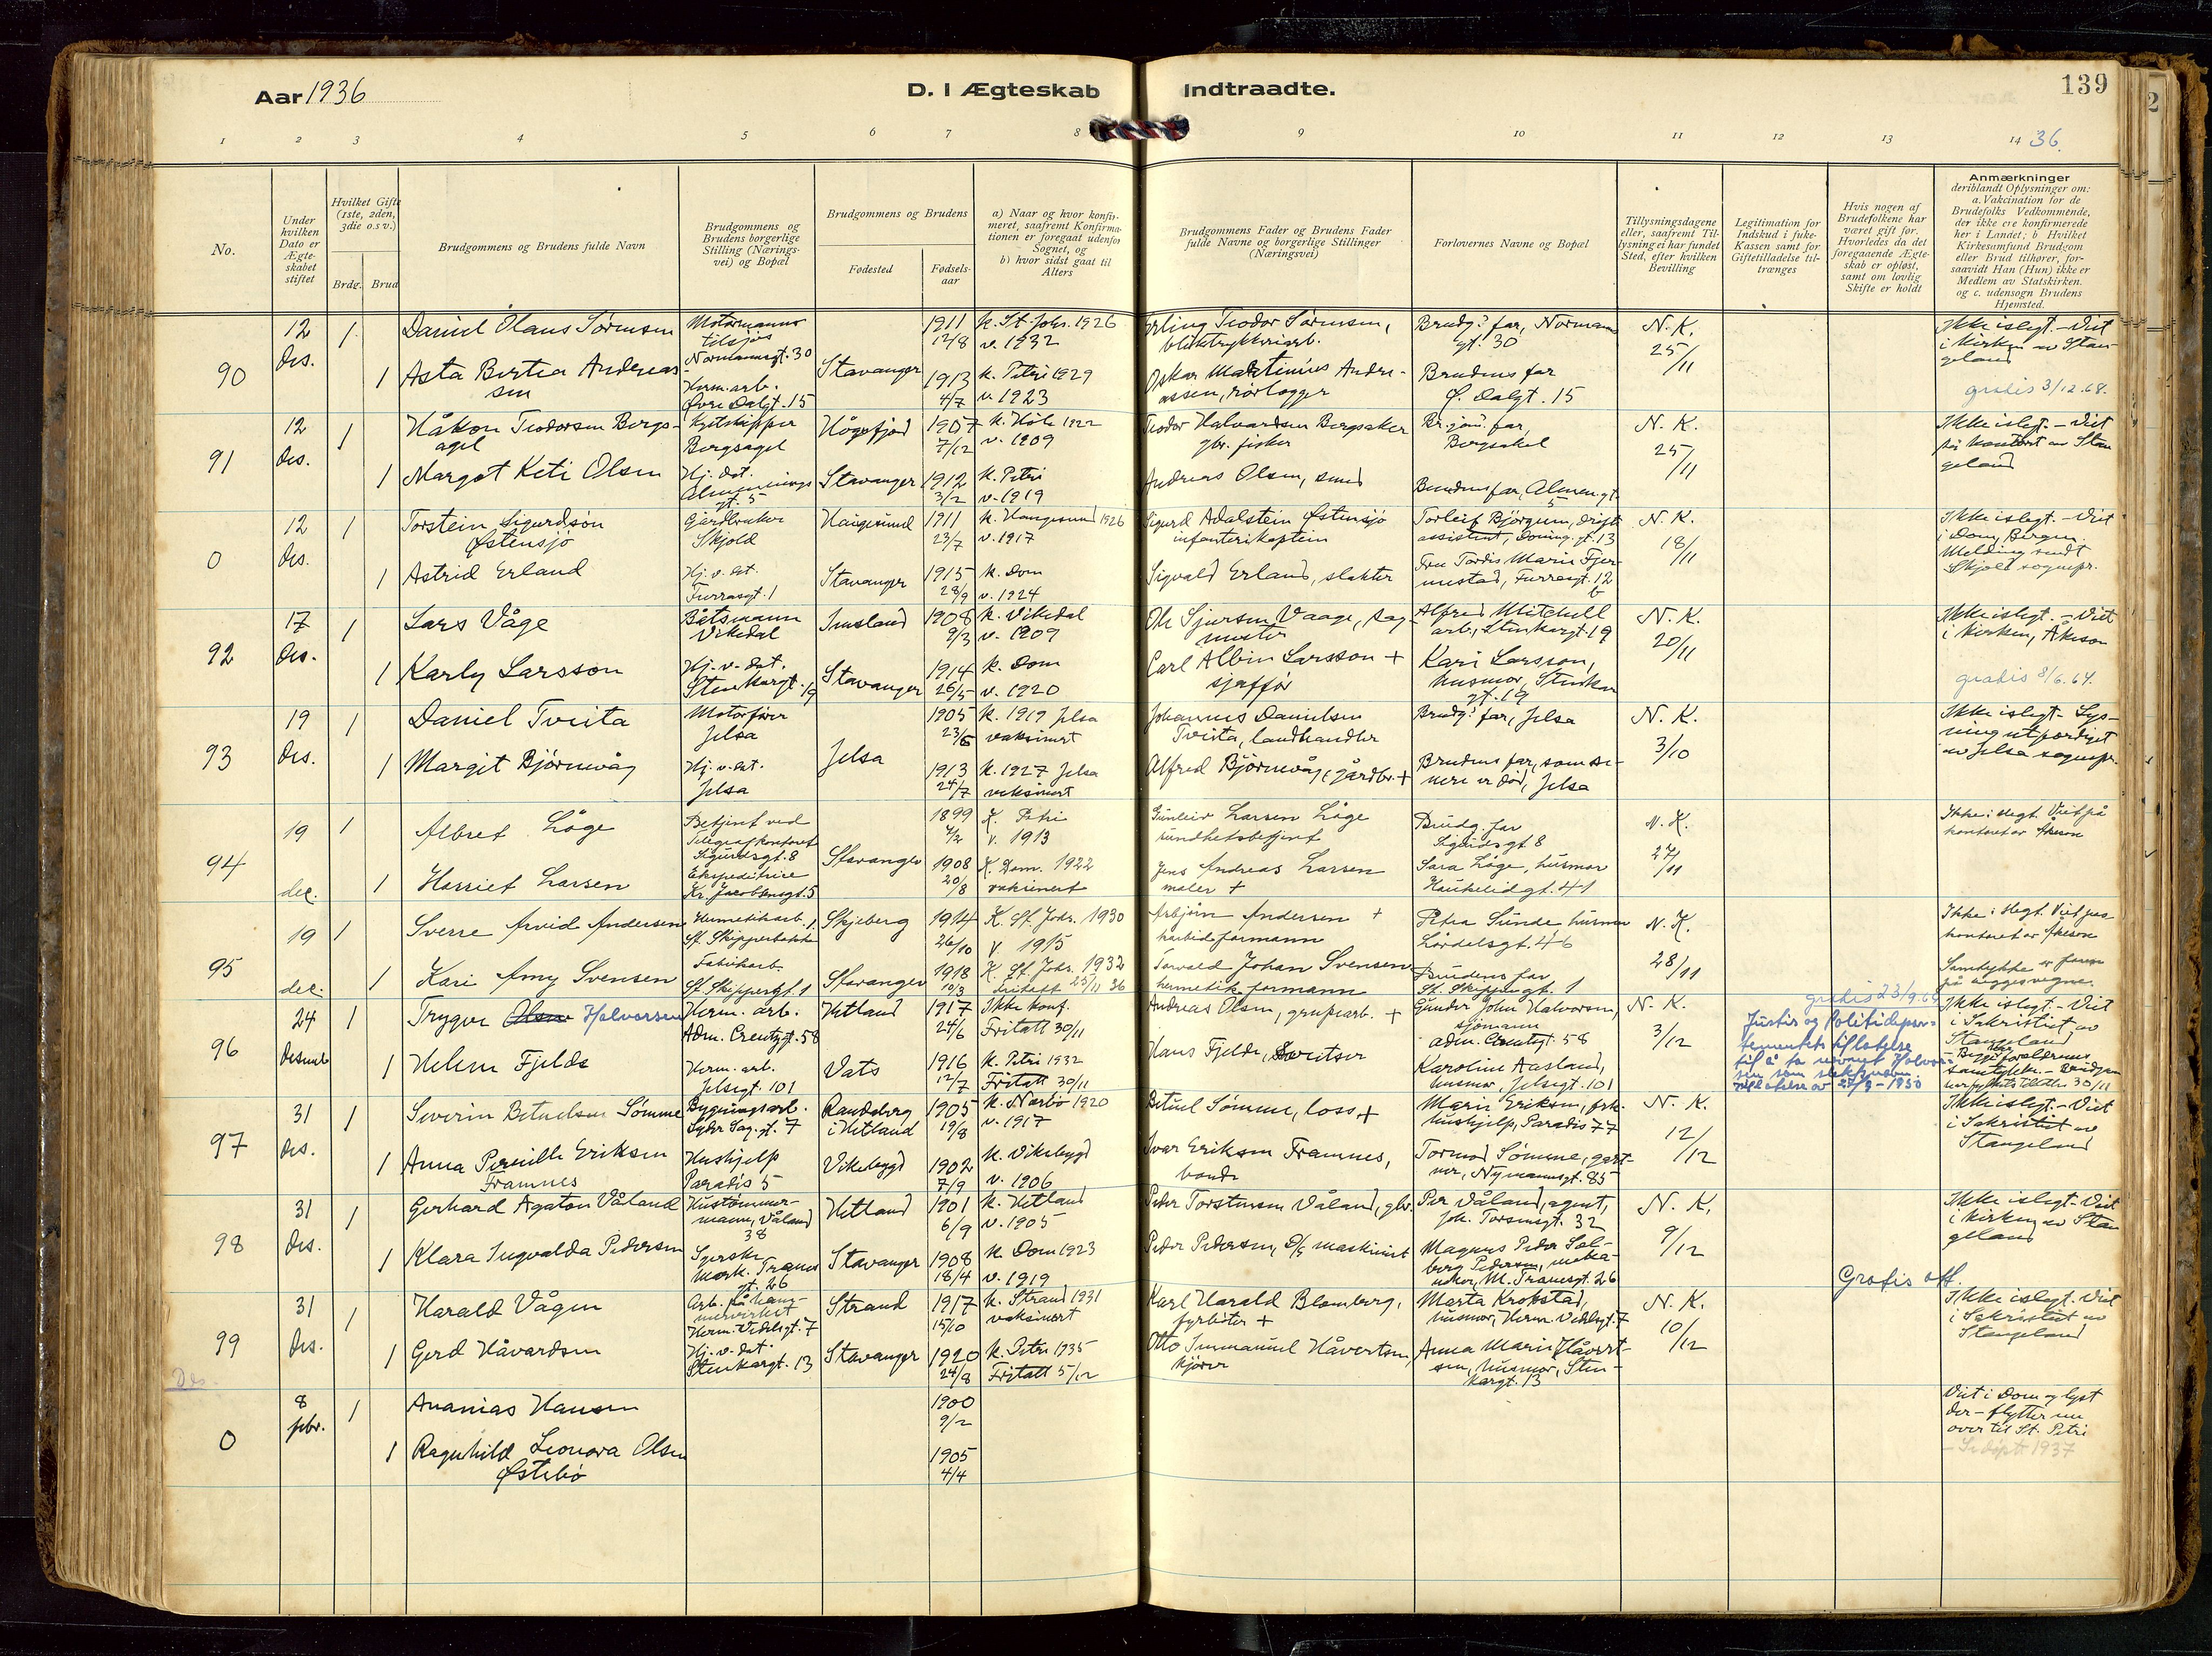 139
Aar 1936
D. I Ægteskab Indtraadte.
1 2 3 4 5 6 7 8 9 10 11 12 13 14 36.
No.
Under hvilken Dato er Ægte-skabet stiftet
Hvilket Gifte (1ste, 2den, 3die o.s v.)
Brdg. Brud
Brudgommens og Brudens fulde Navn
Brudgommens og Brudens borgerlige Stilling (Nærings-vei) og Bopæl
Brudgommens og Brudens
Fødested
Fødsels-aar
a) Naar og hvor konfir-meret, saafremt Konfirma-tionen er foregaat udenfor Sognet, og b) hvor sidst gaat til Alters
Brudgommens Fader og Brudens Fader fulde Navne og borgerlige Stillinger (Næringsvei)
Forlovernes Navne og Bopæl
Tillysningsdagene eller, saafremt Til-lysning ei har fundet Sted, efter hvilken Bevilling
Legitimation for Indskud i fuke-Kassen samt for Giftetilladelse til-trænges
Hvis nogen af Brudefolkene har været gift før. Hvorledes da det foregaaende Ægte-skab er opløst, samt om lovlig Skifte er holdt
Anmærkninger
deriblandt Oplysninger om: a. Vakcination for de Brudefolks Vedkommende, der ikke ere konfirmerede her i Landet; b Hvilket Kirkesamfund Brudgom eller Brud tilhører, for-saavidt Han (Hun) ikke er Medlem av Statskirken. og c. udensogn Brudens Hjemsted.
90
12 des. 1 Daniel Olaus Sørensen Motormann tilsjøs Normannsgt. 30 1911 12/8 k. St. Johs. 1926 v. 1932 Erling Teodor Sørensen, bliktrykkeriarb. Brudg.s far, Normannsgt. 30 N. K. 25/11 Ikke i slegt. - Viet i kirken av Stangeland
1 Asta Bertea Andreassen Herm. arb. Øvre Dalgt. 15 Stavanger 1913 4/7 k. Petri 1929 v. 1923 Oskar Martinius Andreassen, rørlegger Brudens far Ø. Dalgt. 15 gratis 3/12.68.
91
12 des. 1 Håkon Teodorsen Bergsagel Bergsagel Høgsfjord 1907 7/12 k. Høle 1922 v. 1909 Teodor Halvardsen Bergsaker gbr. fisker far, N. K. 25/11 Ikke i slegt. - Viet på kontoret av Stangeland
1 Margot Keti Olsen Hj. dat. Almenningsgt. 5 Stavanger 1912 3/2 k. Petri v. 1919 Andreas Olsen, smed Brudens far, Almen. gt. 5
0
12 des. 1 Torstein Sigurdsøn Østensjø Gårdbruker Skjold Haugesund 1911 23/7 k. Haugesund 1926 v. 1917 Sigurd Adalstein Østensjø infanterikaptein Torleif Bjørgum, drift assistent, gt. 13 N. K. 18/11 Ikke i slegt. - Viet i Dom, Bergen. Melding sendt Skjold sognepr.
1 Astrid Erland Hj. v. dat. Furrasgt. 1 Stavanger 1915 28/9 k. Dom v. 1924 Sigvald Erland, slakter Fru Tordis Marie Fjermestad, Furrasgt. 12
92
17 des. 1 Lars Våge Båtsmann Vikedal Imsland 1908 9/3 k. Vikedal v. 1909 Ole Sjursen Vaage, sagmester Alfred Mitchell arb., Stenkargt. 19 N. K. 20/11 Ikke i slegt. - Viet i kirken, Åkeson
1 Karly Larsson Hj. v. dat. Stenkargt. 19 Stavanger 1914 26/5 k. Dom v. 1920 Carl Albin Larsson + sjaffør Kari Larsson, husmor, Stenkargt. 19 gratis 8/6.64.
93
19 des. 1 Daniel Tveita Motorfører Jelsa 1905 23/6 k. 1919 Jelsa vaksinert Johannes Danielsen Tveita, landhandler Brudg.s far, Jelsa N. K. 3/10 Ikke i slegt - Lysning utferdiget av Jelsa sognepr.
1 Margit Bjørnevåg Hj. v. dat. Jelsa Jelsa 1913 24/7 k. 1927 Jelsa vaksinert Alfred Bjørnevåg, gårdbr. + Brudens far, som senere er død, Jelsa
94
19 dec. 1 Albret Låge Betjent ved Telegrafkontoret Sigurdsgt. 8 1899 4/2 K. Petri v. 1913 Gunleiv Larsen Låge sundhetsbetjent Brudg. far Sigurdsgt 8 N. K. 27/11 Ikke i slegt Viet på kontoret av Åkeson
1 Harriet Larsen Ekspeditrise Kr. Jacobsensgt. 5 Stavanger 1908 20/8 K. Dom. 1922 vaksinert Jens Andreas Larsen maler + Sara Låge, husmor Haukeligt. 41
95
19 dec. 1 Sverre Arvid Andersen Hermetikarb. St. Skipperbakke 1. Skjeberg 1914 26/10 K. St. Johs. 1930 v 1915 Asbjørn Andersen + karbidformann Petra Sunde husmor Lårdalsgt. 46 N. K. 28/11 Ikke i slegt Viet på kontoret av Åkeson
1 Kari Amy Svensen Fabrikarb. St. Skippergt. 1 Stavanger 1918 10/3 K. St. Johs. 1932 fritatt 25/11 36 Torvald Johan Svensen hermetik formann Brudens far St. Skippergt. 1 Samtykke er
96
24 Desemb 1 Trygve Olsen Halvorsen Herm. arb. Adm. Creutzgt. 58 Hetland 1917 24/6 Ikke konf. Fritatt 30/11 Andreas Olsen, grubearb. + Gunder John Halvorsen, sjømann adm. Creutzgt. 58 N. K. 3/12 gratis 23/9.64
Justis og Politidepartementets tillatelse til å ta navnet Halvorsen som slektsnavn. Tillatelse av 27/9-1950
Ikke i slegt - Viet i Sakristiet av Stangeland foreldrenes samtykke. 30/11
1 Helene Fjelde Herm. arb. Jelsegt. 101 Vats 1916 12/7 k. Petri 1932 Fritatt 30/11 Hans Fjelde, Karoline Aasland, husmor, Jelsegt. 101
97
31 des. 1 Severin Betuelsen Sømme Bygningsarb. Søndre Sag. gt. 7 Randaberg i Hetland 1905 19/8 k. Nærbø 1920 v. 1917 Betuel Sømme, loss + Marie Eriksen, frk. hushjelp, Paradis 77 N. K. 12/12 Ikke i slegt. - Viet i Sakristiet av Stangeland
1 Anna Pernille Eriksen Framnes Hushjelp Paradis 5 Vikebygd 1902 7/9 k. Vikebygd v. 1906 Ivar Eriksen Framnes, bonde Tormod Sømme, gartner, Nymannsgt. 85
98
31 des. 1 Gerhard Agaton Våland Hustømmermann, Våland 38 Hetland 1901 6/9 k. Hetland v. 1905 Peder Torstensen Våland, gbr. Per Våland, agent, Joh. Torsensgt. 32 N. K. 9/12 Ikke i slegt - Viet i kirken av Stangeland
1 Klara Ingvalda Pedersen Syerske Mork. Tranes gt. 26 Stavanger 1908 18/4 k. Dom 1923 v. 1919 Peder Pedersen, D/S maskinist Magnus Peder Solberg Pedersen, mekaniker, M. Tranesgt. 26
Gratis att.
99
31 des. 1 Harald Vågen Arb. på hammerverket Herm. Vedelsgt. 7 Strand 1917 15/10 k. Strand 1931 vaksinert Karl Harald Blomberg, fyrbøter + Marta Krokstad, husmor, Herm. Vedelsgt. 7 N. K. 10/12 Ikke i slegt. Viet i Sakristiet av Stangeland
1 Gerd Håvardsen Hj. v. dat. Stenkargt. 13 Stavanger 1920 24/8 k. Petri 1935 Fritatt 5/12 Otto Immanuel Håvertsen, kjører Anna Marie Håvertsen, husmor, Stenkargt. 13
Des.
0
8 febr. 1 Ananias Hansen 1900 9/2 Viet i Dom og lyst der - flytter nu over til St. Petri
1 Ragnhild Leonora Olsen Østebø 1905 4/4 1937